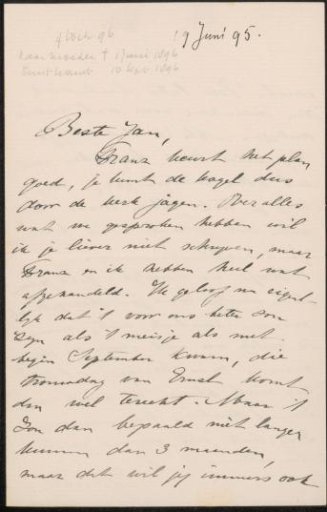 4 Oct 96
19 Juni 95.
haar moeder † 1 Juni 1896
10 1896
Beste Jan,
Franz keurt het plan
goed, je kunt de kogel dus
door de kerk jagen. Over alles
wat we gesproken hebben wil
ik je liever niet schrijven, maar
Franz en ik hebben heel wat
afgehandeld. Ik geloof nu eigen-
lijk dat 't voor ons beter zou
zijn als 't meisje als met
begin September kwam, die
trouwdag van Ernst komt
dan wel terecht. Maar 't
zou dan bepaald niet langer
kunnen dan 3 maanden,
maar dat wil jij immers ook